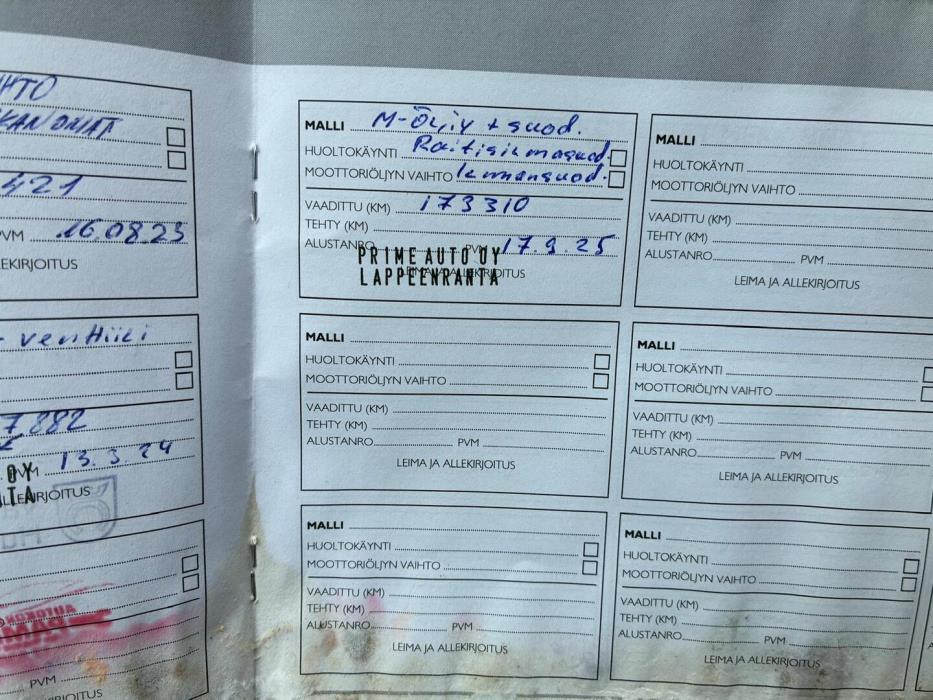 HTO
KANOMAT
421
PVM 16.08.23
LEKIRJOITUS
venttiili
7882
PVM 13.3.24
OY
TA
ALLEKIRJOITUS
PVM
KIRJOITUS
MALLI M-Öljy + suod.
HUOLTOKÄYNTI Raitisilmasuod.
MOOTTORIÖLJYN VAIHTO ilmansuod.
VAADITTU (KM) 173310
TEHTY (KM)
ALUSTANRO PVM 17.9.25
PRIME AUTO OY
LEIMA JA ALLEKIRJOITUS
LAPPEENRANTA
MALLI
HUOLTOKÄYNTI
MOOTTORIÖLJYN VAIHTO
VAADITTU (KM)
TEHTY (KM)
ALUSTANRO PVM
LEIMA JA ALLEKIRJOITUS
MALLI
HUOLTOKÄYNTI
MOOTTORIÖLJYN VAIHTO
VAADITTU (KM)
TEHTY (KM)
ALUSTANRO PVM
LEIMA JA ALLEKIRJOITUS
MALLI
HUOLTOKÄYNTI
MOOTTORIÖLJYN VAIHTO
VAADITTU (KM)
TEHTY (KM)
ALUSTANRO PVM
LEIMA JA ALLEKIRJOITUS
MALLI
HUOLTOKÄYNTI
MOOTTORIÖLJYN VAIHTO
VAADITTU (KM)
TEHTY (KM)
ALUSTANRO PVM
LEIMA JA ALLEKIRJOITUS
MALLI
HUOLTOKÄYNTI
MOOTTORIÖLJYN VAIHTO
VAADITTU (KM)
TEHTY (KM)
ALUSTANRO PVM
LEIMA JA ALLEKIRJOITUS